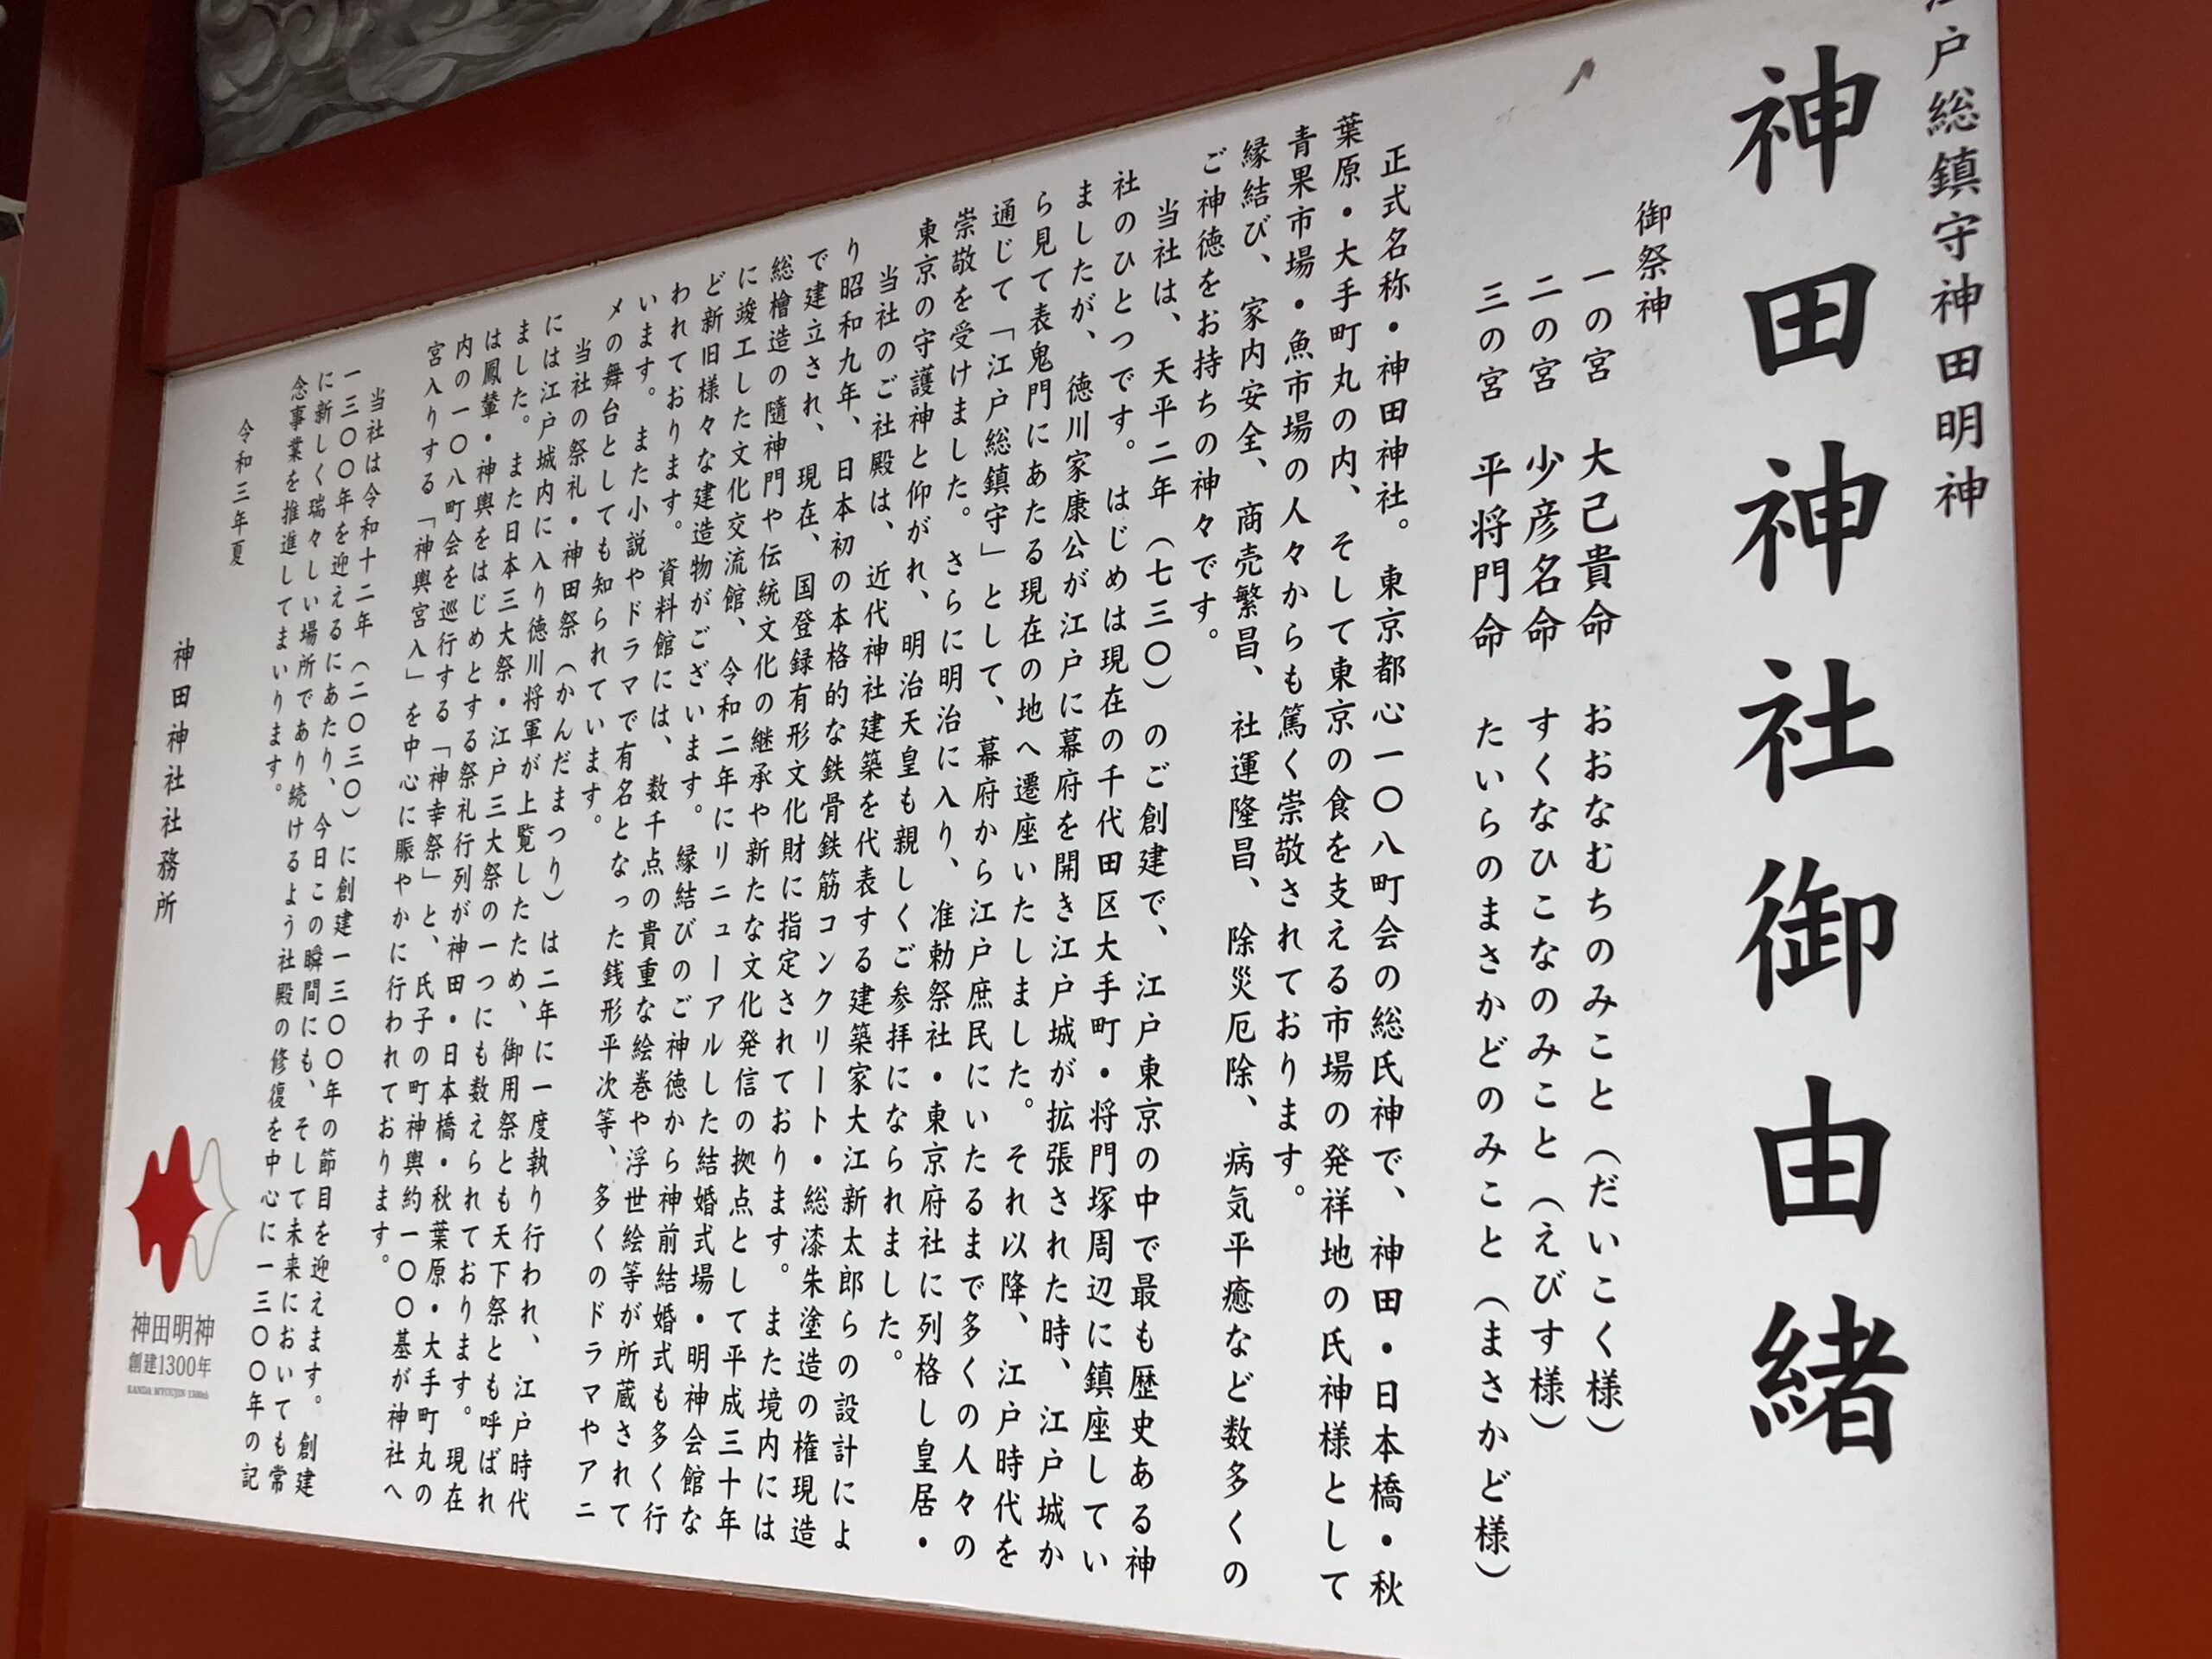 江戸総鎮守神田明神
神田神社御由緒
御祭神
一の宮　大己貴命　おおなむちのみこと（だいこく様）
二の宮　少彦名命　すくなひこなのみこと（えびす様）
三の宮　平将門命　たいらのまさかどのみこと（まさかど様）
正式名称・神田神社。東京都心一〇八町会の総氏神で、神田・日本橋・秋
葉原・大手町丸の内、そして東京の食を支える市場の発祥地の氏神様として
青果市場・魚市場の人々からも篤く崇敬されております。
縁結び、家内安全、商売繁昌、社運隆昌、除災厄除、病気平癒など数多くの
ご神徳をお持ちの神々です。
当社は、天平二年（七三〇）のご創建で、江戸東京の中で最も歴史ある神
社のひとつです。はじめは現在の千代田区大手町・将門塚周辺に鎮座してい
ましたが、徳川家康公が江戸に幕府を開き江戸城が拡張された時、江戸城か
ら見て表鬼門にあたる現在の地へ遷座いたしました。それ以降、江戸時代を
通じて「江戸総鎮守」として、幕府から江戸庶民にいたるまで多くの人々の
崇敬を受けました。さらに明治に入り、准勅祭社・東京府社に列格し皇居・
東京の守護神と仰がれ、明治天皇も親しくご参拝になられました。
当社のご社殿は、近代神社建築を代表する建築家大江新太郎らの設計によ
り昭和九年、日本初の本格的な鉄骨鉄筋コンクリート・総漆朱塗造の権現造
で建立され、現在、国登録有形文化財に指定されております。また境内には
総檜造の隨神門や伝統文化の継承や新たな文化発信の拠点として平成三十年
に竣工した文化交流館、令和二年にリニューアルした結婚式場・明神会館な
ど新旧様々な建造物がございます。縁結びのご神徳から神前結婚式も多く行
われております。資料館には、数千点の貴重な絵巻や浮世絵等が所蔵されて
います。また小説やドラマで有名となった銭形平次等、多くのドラマやアニ
メの舞台としても知られています。
当社の祭礼・神田祭（かんだまつり）は二年に一度執り行われ、江戸時代
には江戸城内に入り徳川将軍が上覧したため、御用祭とも天下祭とも呼ばれ
ました。また日本三大祭・江戸三大祭の一つにも数えられております。現在
は鳳輦・神輿をはじめとする祭礼行列が神田・日本橋・秋葉原・大手町丸の
内の一〇八町会を巡行する「神幸祭」と、氏子の町神輿約一〇〇基が神社へ
宮入りする「神輿宮入」を中心に賑やかに行われております。
当社は令和十二年（二〇三〇）に創建一三〇〇年の節目を迎えます。創建
一三〇〇年を迎えるにあたり、今日この瞬間にも、そして未来においても常
に新しく瑞々しい場所であり続けるよう社殿の修復を中心に一三〇〇年の記
念事業を推進してまいります。
令和三年夏
神田神社社務所
神田明神
創建1300年
KANDA MYOUJIN 1300th